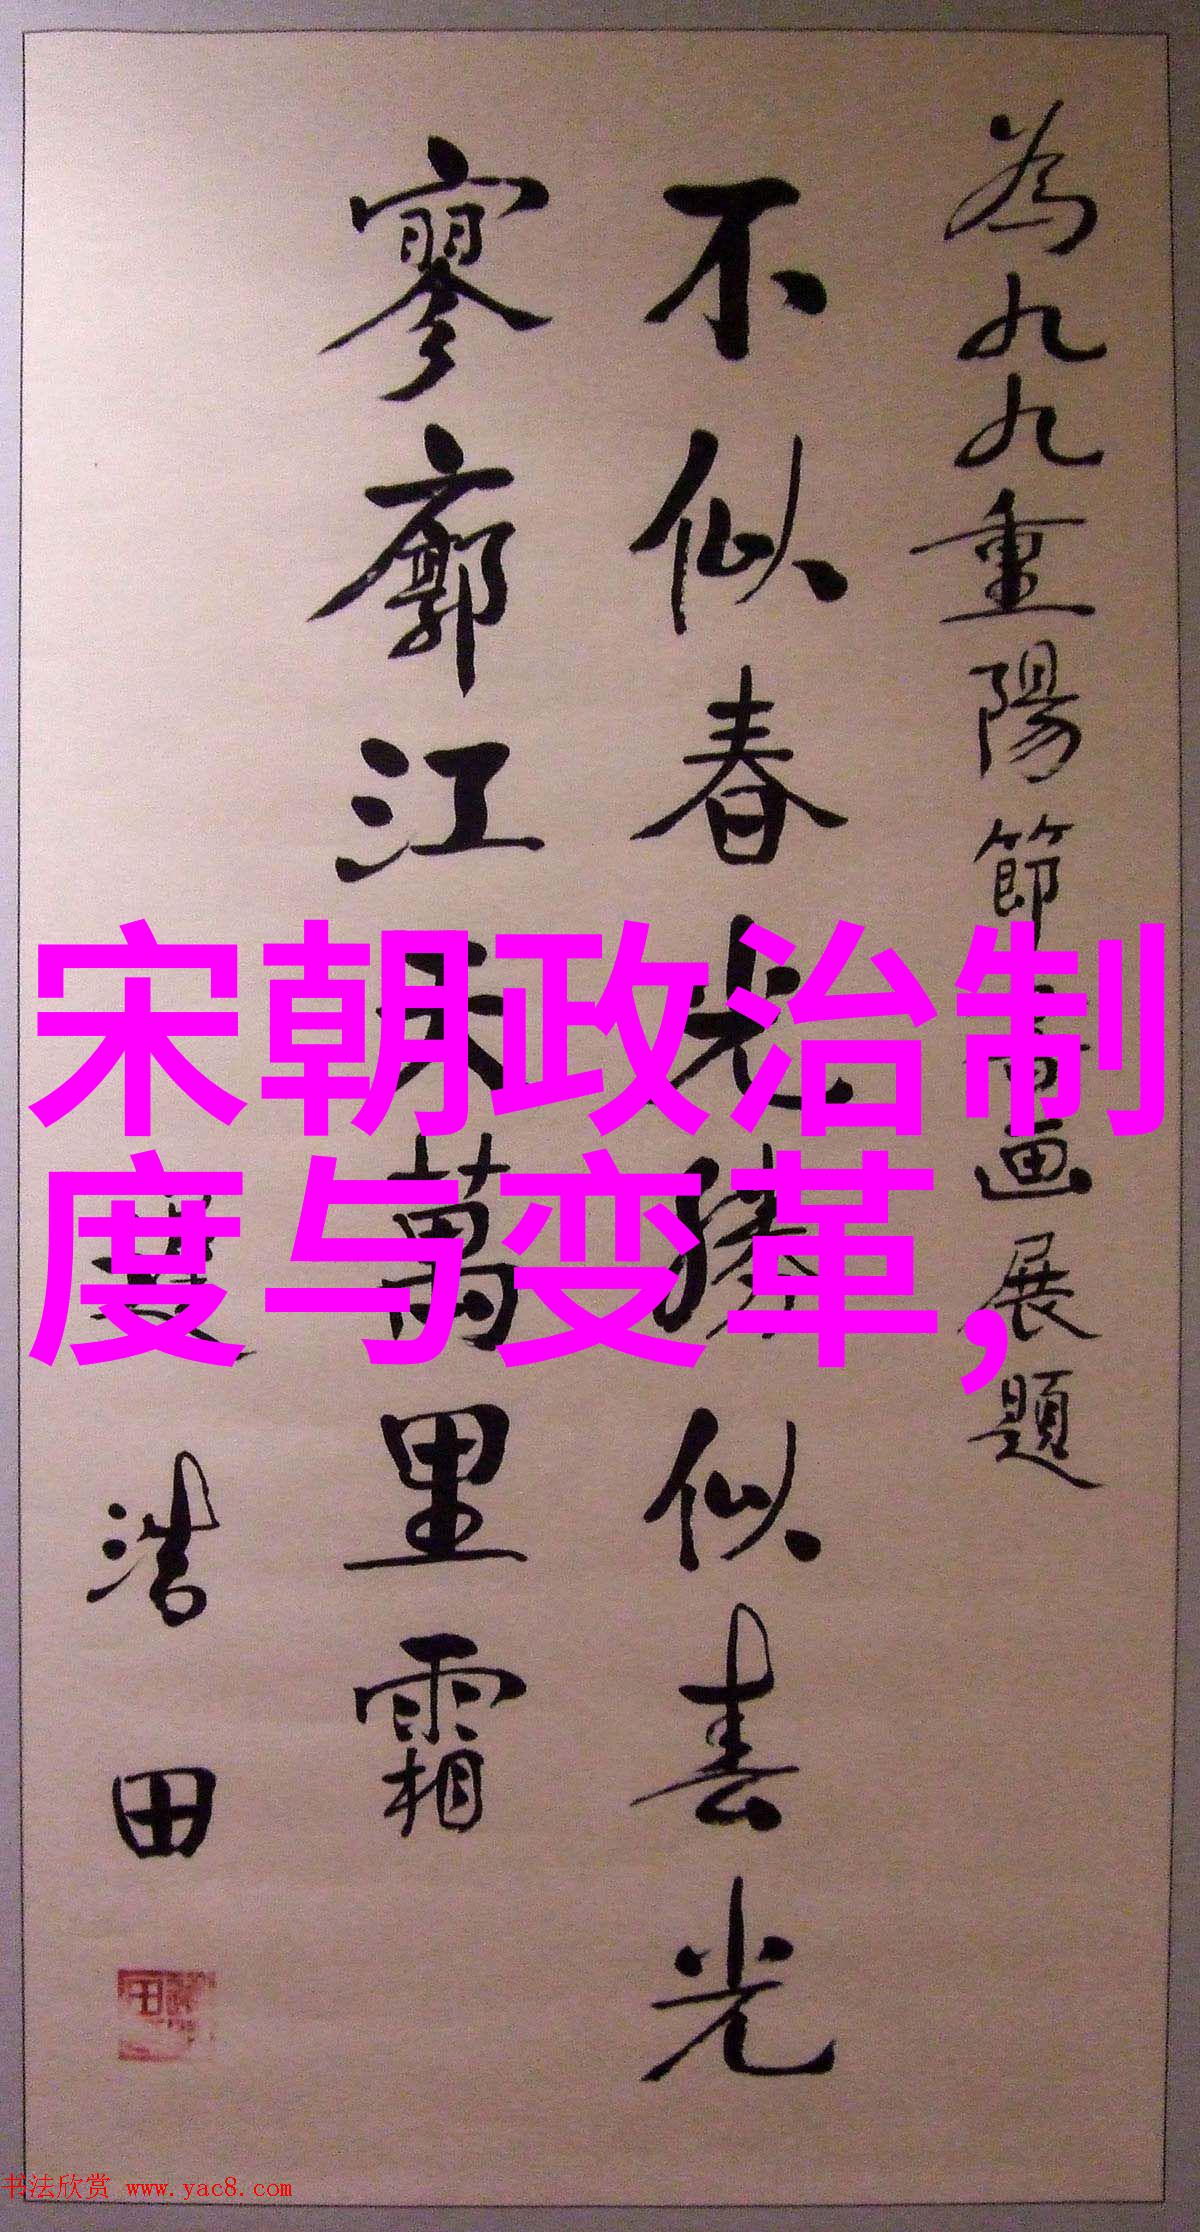 為九九重陽節書画展題
不似春光勝似春光
寥廓江天萬里霜
浩田
宋朝政治制
度与变革,
书法欣赏 www.yac8.com